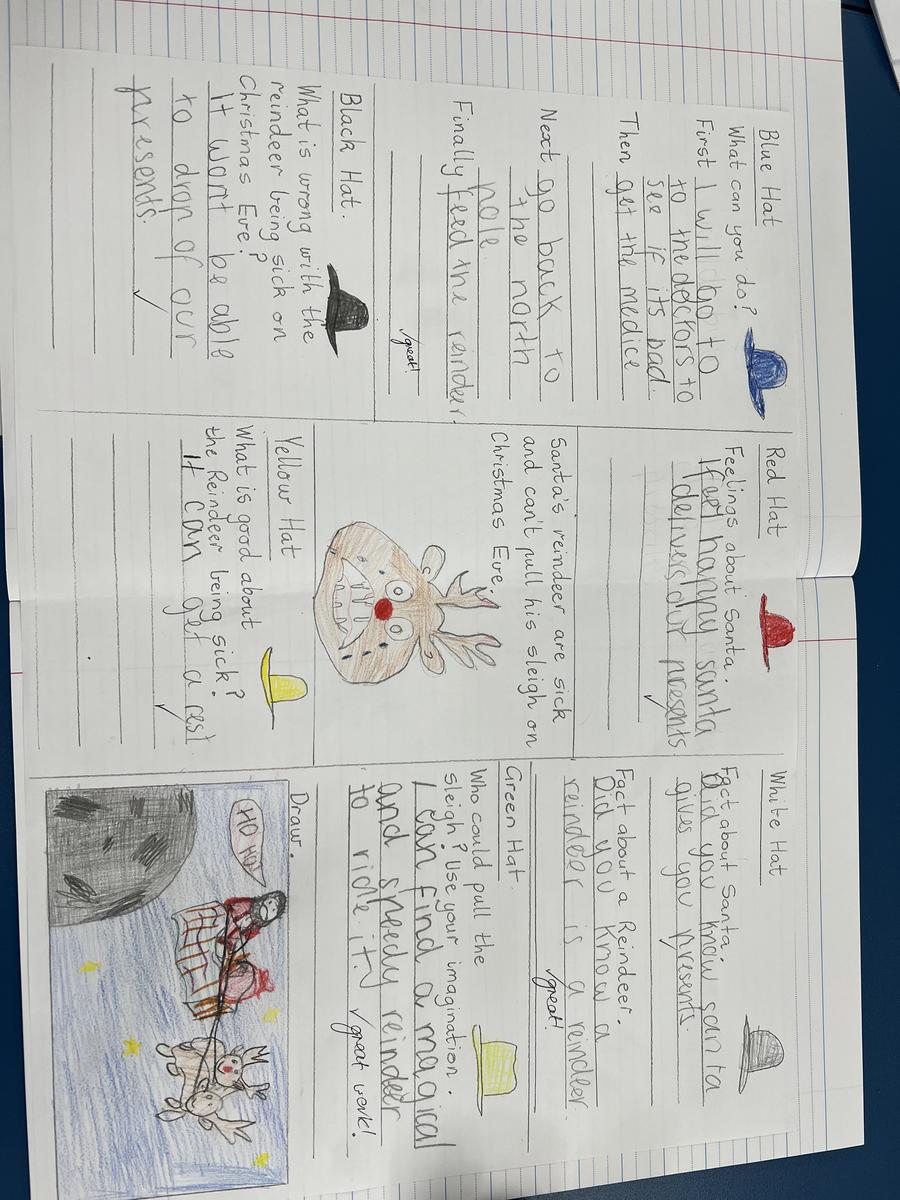 Blue Hat
What can you do?
First I will go to
to the doctors to
see if its bad.
Then get the medice
Next go back to
the north
pole
Finally feed the reindeer.
great!
Red Hat
Feelings about Santa.
I feel happy santa
delivers our presents.
White Hat
Fact about Santa.
Did you know santa
gives you presents.
Fact about a Reindeer.
Did you know a
reindeer is a reindeer.
great!
Santa's reindeer are sick
and can't pull his sleigh on
Christmas Eve.
Black Hat.
What is wrong with the
reindeer being sick on
Christmas Eve?
it wont be able
to drop of our
presents.
Yellow Hat
What is good about
the Reindeer being sick?
It can get a rest
Green Hat.
Who could pull the
sleigh? Use your imagination.
I can find a magical
and speedy reindeer
to ride it.
great work!
Draw.
HO HO